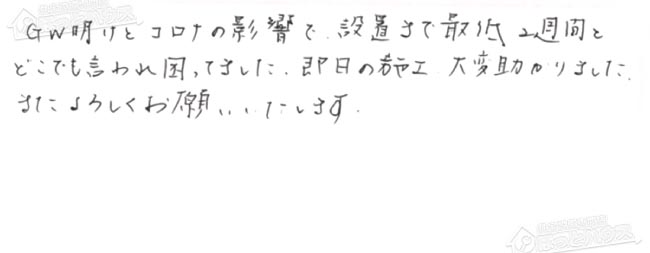 GW明けとコロナの影響で、設置まで最低2週間と
どこでも言われ困ってました。即日の施工、大変助かりました。
またよろしくお願いいたします。